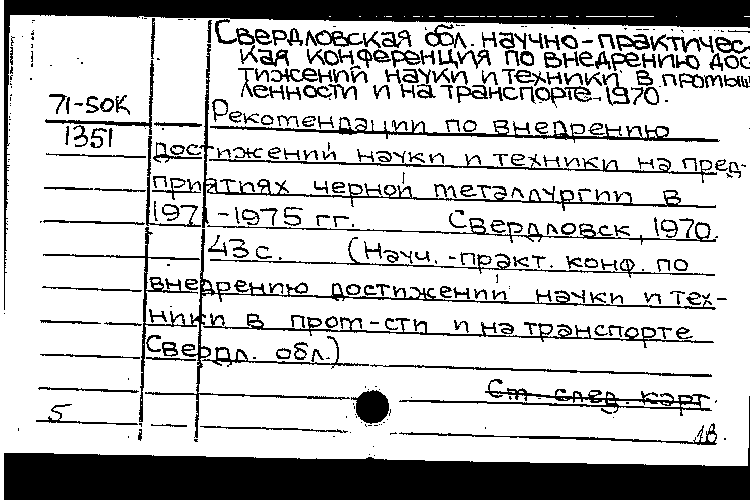 Свердловская обл. научно-практичес
кая конференция по внедрению дос
тижений науки и техники в промыш
ленности и на транспорте. 1970.
71-50К
1351
Рекомендации по внедрению
достижений науки и техники на пред-
приятиях черной металлургии в
1971-1975 гг. Свердловск, 1970.
43 с. (Науч.-практ. конф. по
внедрению достижений науки и тех-
ники в пром-сти и на транспорте
Свердл. обл.)
См. след. карт.
5
1В.